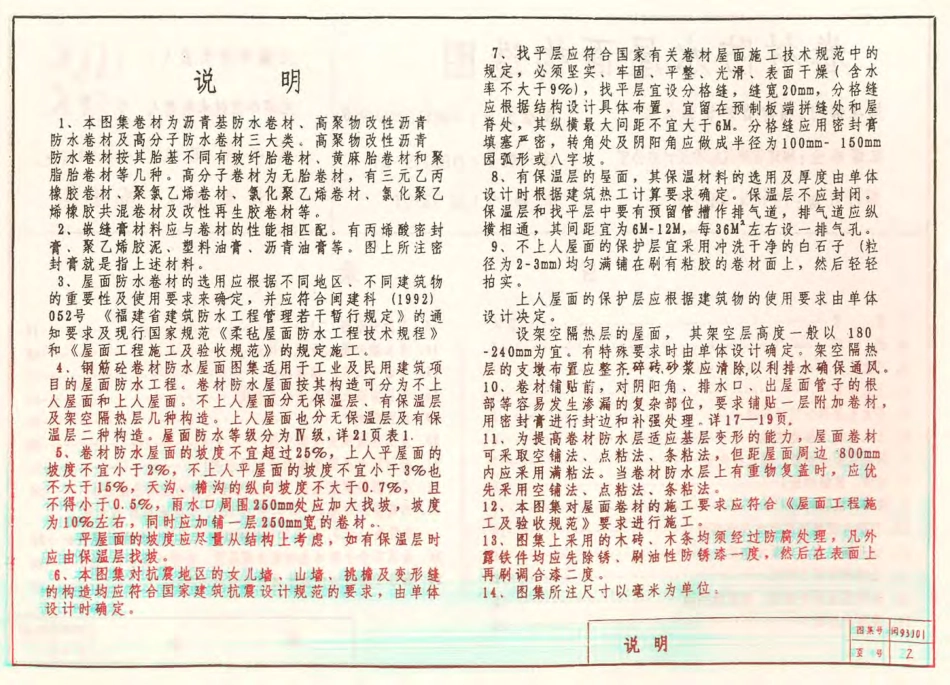 说 明
1、本图集卷材为沥青基防水卷材、高聚物改性沥青
防水卷材及高分子防水卷材三大类。高聚物改性沥青
防水卷材按其胎基不同有玻纤胎卷材、黄麻胎卷材和聚
脂胎卷材等几种。高分子卷材为无胎卷材，有三元乙丙
橡胶卷材、聚氯乙烯卷材、氯化聚乙烯卷材、氯化聚乙
烯橡胶共混卷材及改性再生胶卷材等。
2、嵌缝膏材料应与卷材的性能相匹配。有丙烯酸密封
膏、聚乙烯胶泥、塑料油膏、沥青油膏等。图上所注密
封膏就是指上述材料。
3、屋面防水卷材的选用应根据不同地区、不同建筑物
的重要性及使用要求来确定，并应符合闽建科 (1992)
052号 《福建省建筑防水工程管理若干暂行规定》的通
知要求及现行国家规范《柔毡屋面防水工程技术规程》
和《屋面工程施工及验收规范》的规定施工。
4、钢筋砼卷材防水屋面图集适用于工业及民用建筑项
目的屋面防水工程。卷材防水屋面按其构造可分为不上
人屋面和上人屋面。不上人屋面分无保温层、有保温层
及架空隔热层几种构造。上人屋面也分无保温层及有保
温层二种构造。屋面防水等级分为Ⅳ级，详21页表1.
5、卷材防水屋面的坡度不宜超过25%，上人平屋面的
坡度不宜小于2%，不上人平屋面的坡度不宜小于3%也
不大于15%，天沟、檐沟的纵向坡度不大于0.7%， 且
不得小于0.5%，雨水口周围250mm处应加大找坡，坡度
为10%左右，同时应加铺一层250mm宽的卷材。
平屋面的坡度应尽量从结构上考虑，如有保温层时
应由保温层找坡。
6、本图集对抗震地区的女儿墙、山墙、挑檐及变形缝
的构造均应符合国家建筑抗震设计规范的要求，由单体
设计时确定。
7、找平层应符合国家有关卷材屋面施工技术规范中的
规定，必须坚实、牢固、平整、光滑、表面干燥(含水
率不大于9%)，找平层宜设分格缝，缝宽20mm，分格缝
应根据结构设计具体布置，宜留在预制板端拼缝处和屋
脊处，其纵横最大间距不宜大于6M。分格缝应用密封膏
填塞严密，转角处及阴阳角应做成半径为100mm- 150mm
园弧形或八字坡。
8、有保温层的屋面，其保温材料的选用及厚度由单体
设计时根据建筑热工计算要求确定。保温层不应封闭。
保温层和找平层中要有预留管槽作排气道，排气道应纵
横相通，其间距宜为6M-12M，每36M²左右设一排气孔。
9、不上人屋面的保护层宜采用冲洗干净的白石子 (粒
径为2-3mm)均匀满铺在刷有粘胶的卷材面上，然后轻轻
拍实。
上人屋面的保护层应根据建筑物的使用要求由单体
设计决定。
设架空隔热层的屋面， 其架空层高度一般以 180
-240mm为宜。有特殊要求时由单体设计确定。架空隔热
层的支墩布置应整齐，碎砖，砂浆应清除，以利排水确保通风。
10、卷材铺贴前，对阴阳角、排水口、出屋面管子的根
部等容易发生渗漏的复杂部位，要求铺贴一层附加卷材，
用密封膏进行封边和补强处理。详17—19页。
11、为提高卷材防水层适应基层变形的能力，屋面卷材
可采取空铺法、点粘法、条粘法，但距屋面周边 800mm
内应采用满粘法。当卷材防水层上有重物复盖时，应优
先采用空铺法、点粘法、条粘法。
12、本图集对屋面卷材的施工要求应符合《屋面工程施
工及验收规范》要求进行施工。
13、图集上采用的木砖、木条均须经过防腐处理，凡外
露铁件均应先除锈、刷油性防锈漆一度，然后在表面上
再刷调合漆二度。
14、图集所注尺寸以毫米为单位。
说 明
图集号 闽93J01
页 号 2